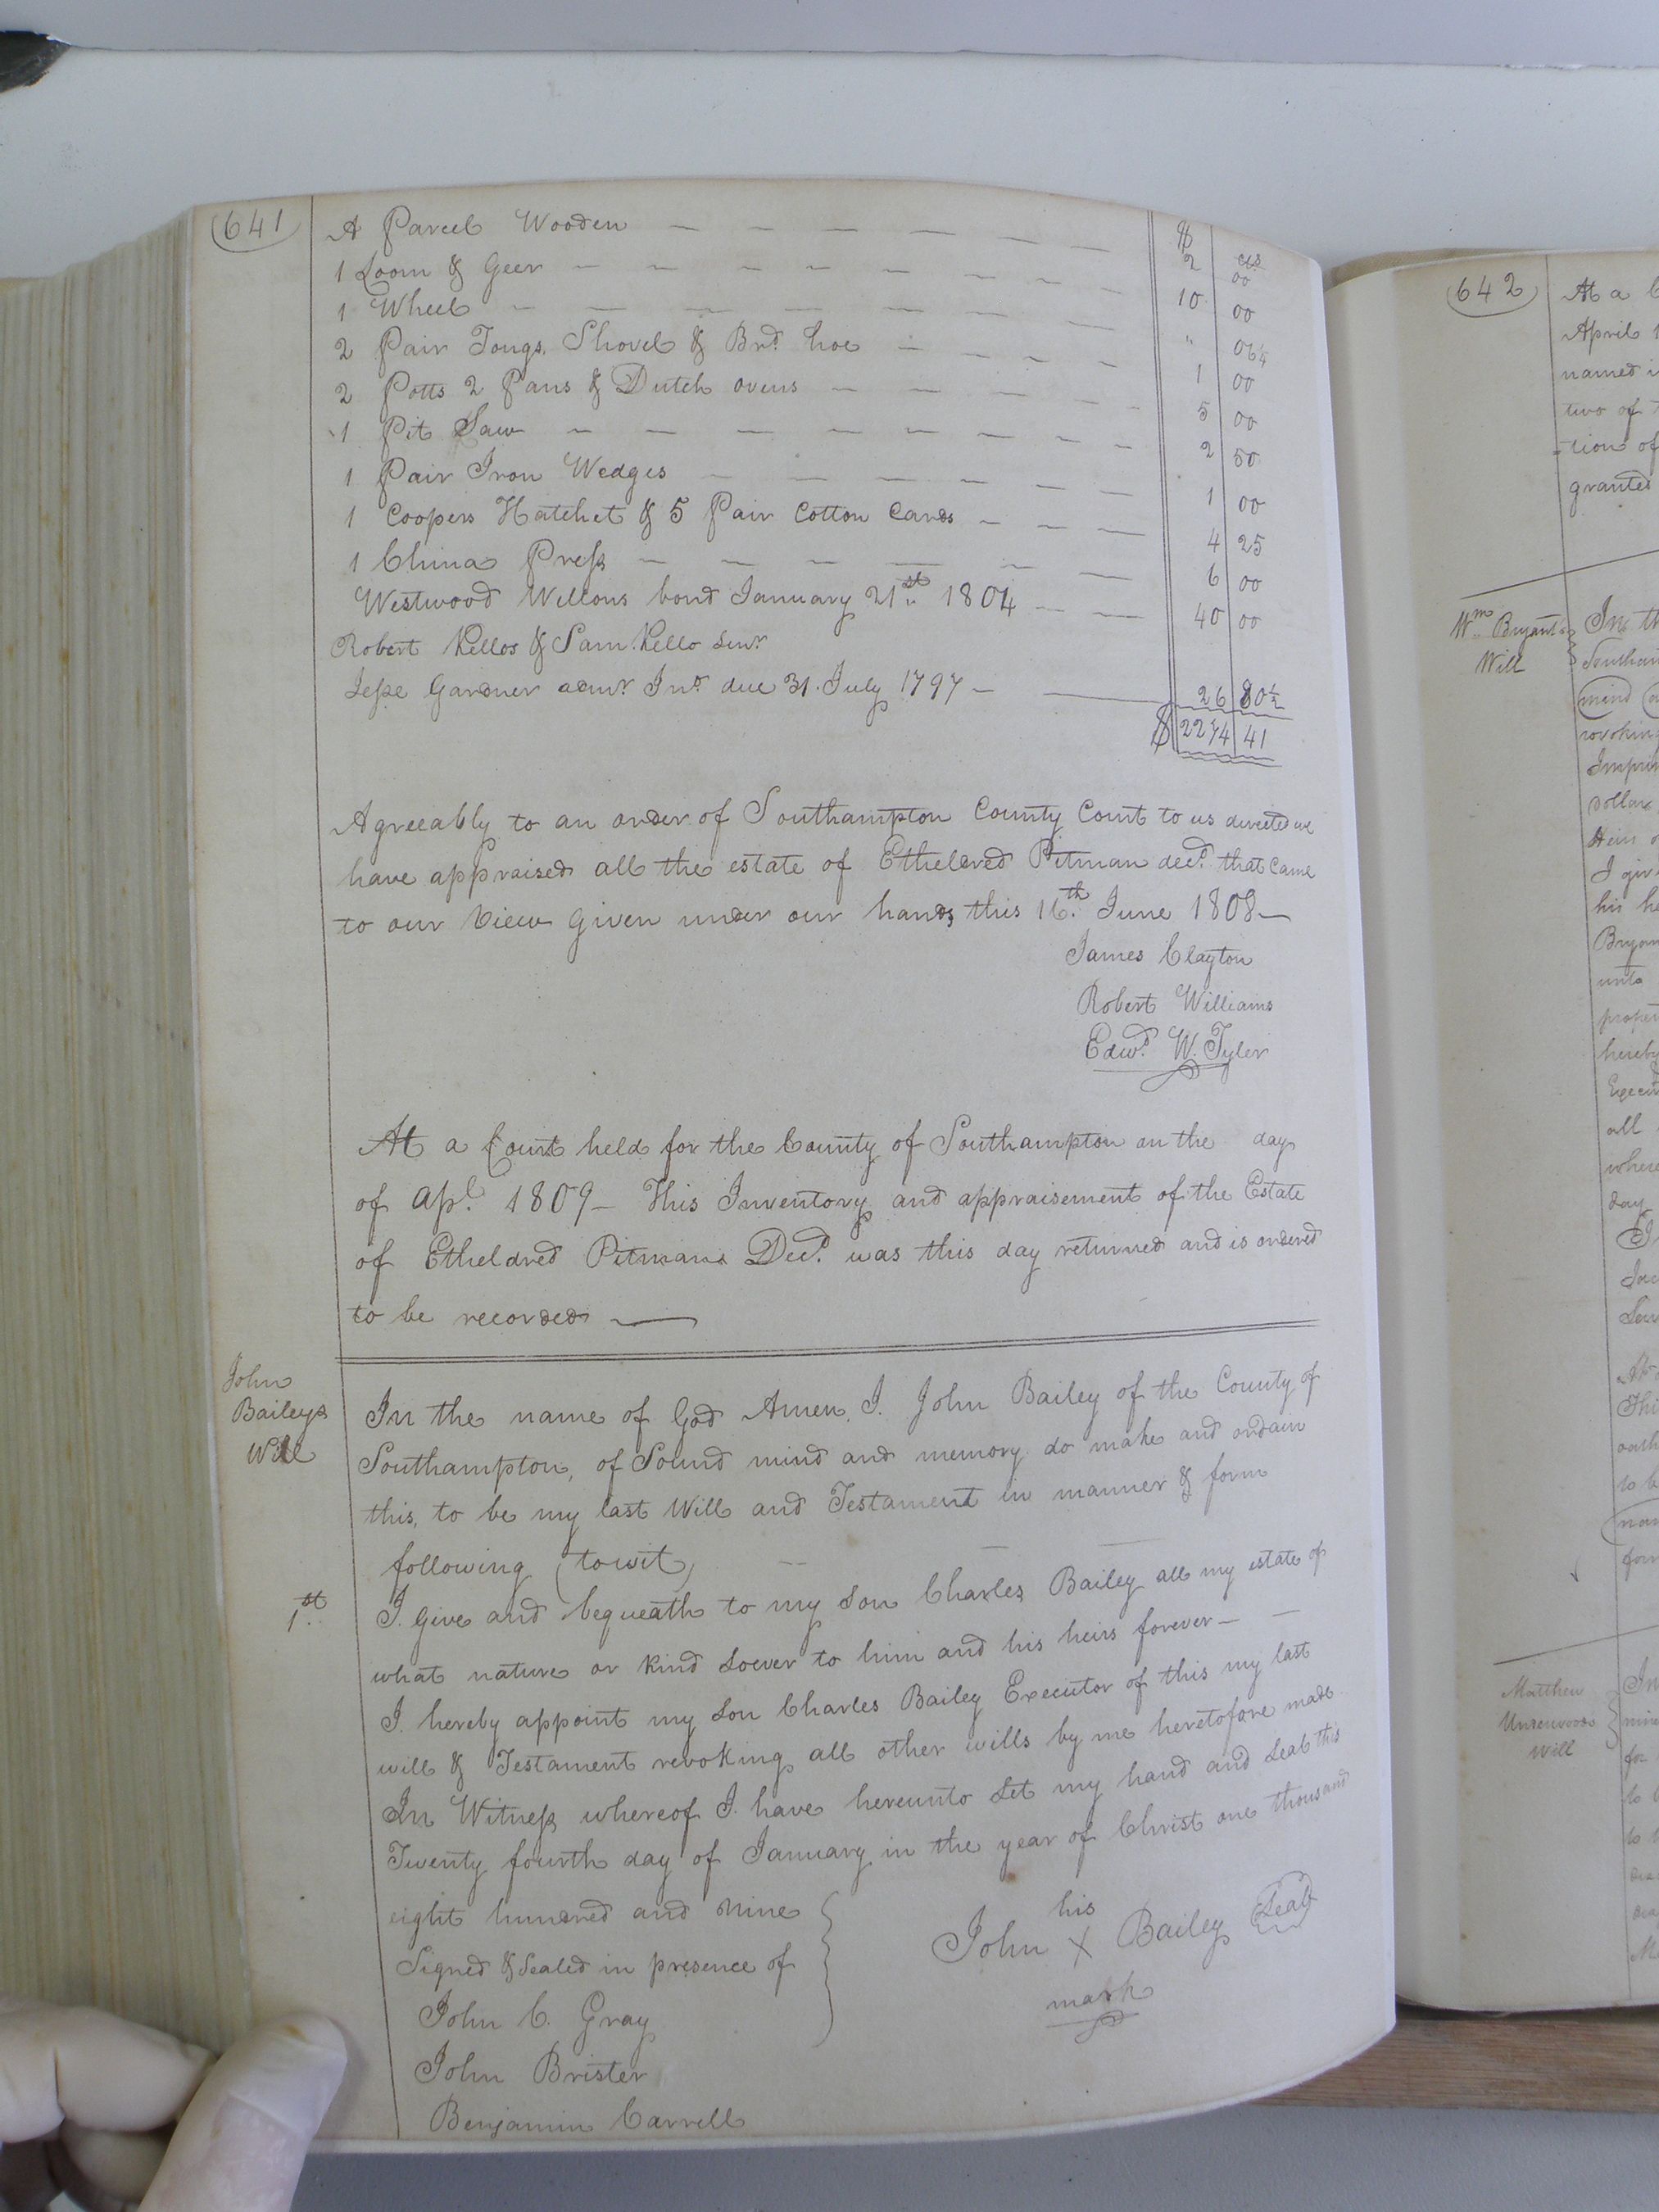 641
A Parcel Wooden $ 2 cts 00
1 Loom & Geer 10 00
1 Wheel " 06¼
2 Pair Tongs, Shovel & Brd. hoe 1 00
2 Potts 2 Pans & Dutch ovens 5 00
1 Pit Saw 2 50
1 Pair Iron Wedges 1 00
1 Coopers Hatchet & 5 Pair Cotton Cards 4 25
1 China Press 6 00
Westwood Wellons bond January 21st 1804 40 00
Robert Kellos & Sam. Kello
Jesse Gardner admr. due 31 July 1797 26 80½
$ 2274 41
Agreeably to an order of Southampton County Court to us directed we
have appraised all the estate of Etheldred Pitman decd. that came
to our View Given under our hands this 16th June 1808
James Clayton
Robert Williams
Edwd. W. Tyler
At a Court held for the County of Southampton on the day
of apl. 1809 – This Inventory and appraisement of the Estate
of Etheldred Pitmans Decd. was this day returned and is ordered
to be recorded
John
Baileys
Will
In the name of God Amen, I. John Bailey of the County of
Southampton, of Sound mind and memory do make and ordain
this, to be my last Will and Testament in manner & form
following (towit)
1st I. Give and bequeath to my son Charles Bailey all my estate of
what nature or kind soever to him and his heirs forever
I. hereby appoint my son Charles Bailey Executor of this my last
will & Testament revoking all other wills by me heretofore made
In Witness whereof I. have hereunto set my hand and seal this
Twenty fourth day of January in the year of Christ one thousand
eight hundred and nine
Signed & sealed in presence of
his
John X Bailey Seal
mark
John C. Gray
John Brister
Benjamin Carrell
642
At a
April
named
two of
tion of
granted
Wm. Bryants
Will
In th
Southam
mind
revokin
Imprim
Dollar
Heirs
I give
his he
Bryan
unto
proper
hereby
Execut
all
where
day
to b
for
Matthew
Underwoods
Will
In
for
to